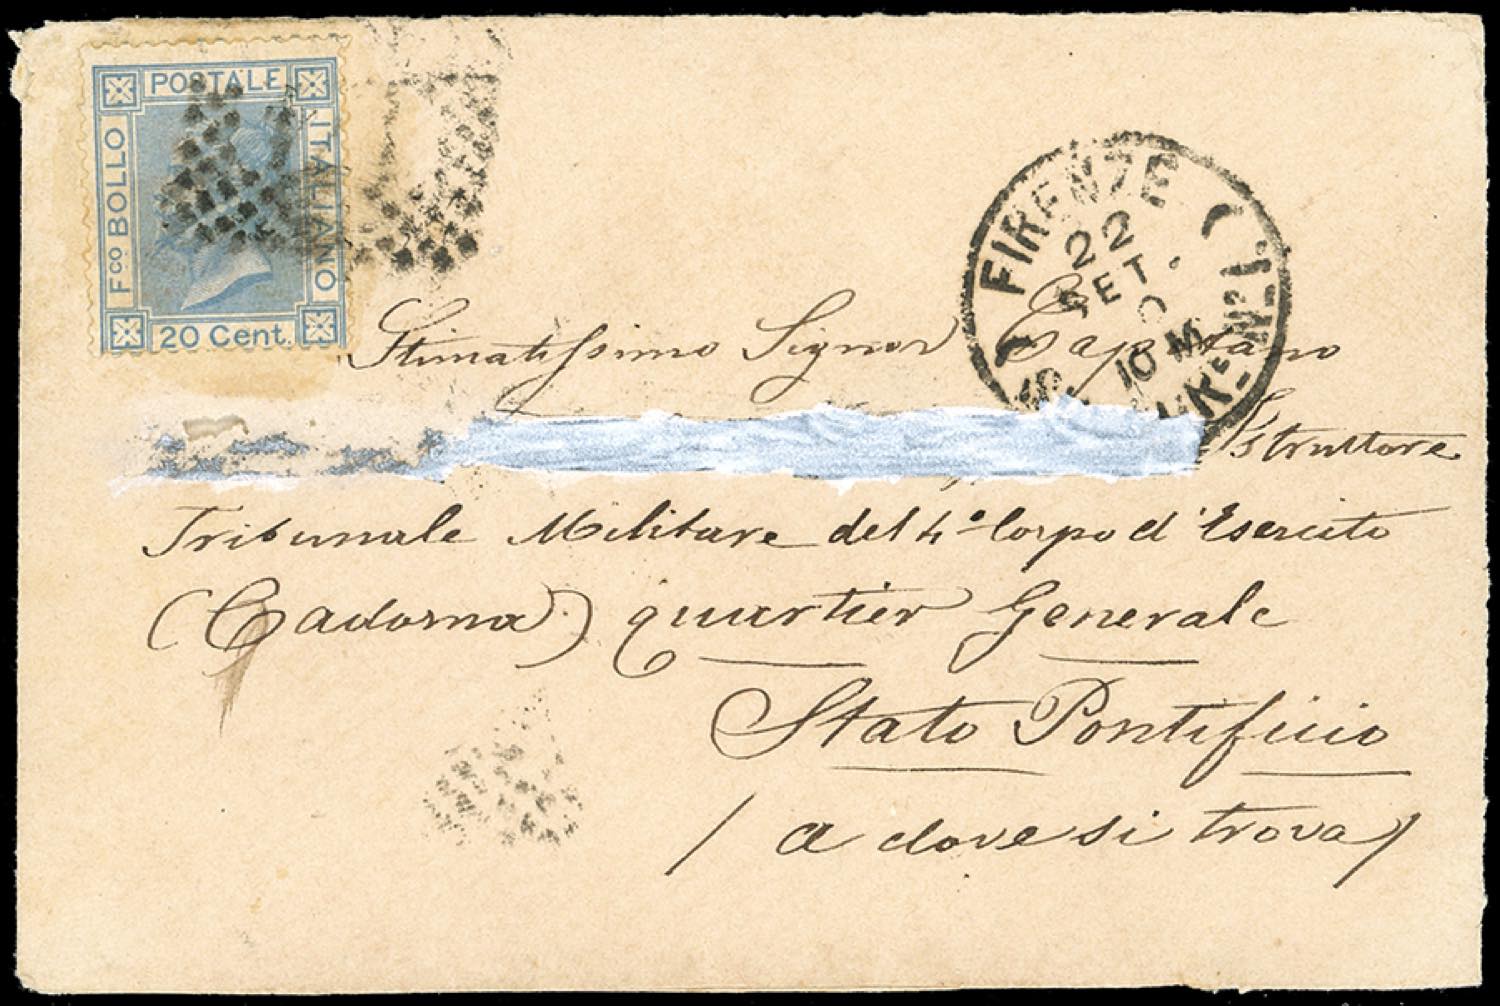 POSTALE
Fco BOLLO
ITALIANO
20 Cent.
FIRENZE
22
SET
10 M
Nº1.
Stimatissimo Signor Capitano
Istruttore
Tribunale Militare del 4º Corpo d'Esercito
(Cadorna) quartier Generale
Stato Pontificio
(a dove si trova)